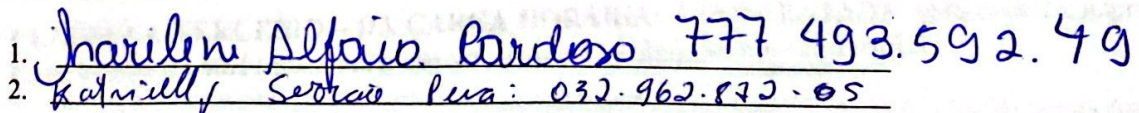 1. Marilene Alfaia Cardoso 777 493.592.49
2. Katrielly Serrão Pena: 032.962.872-05